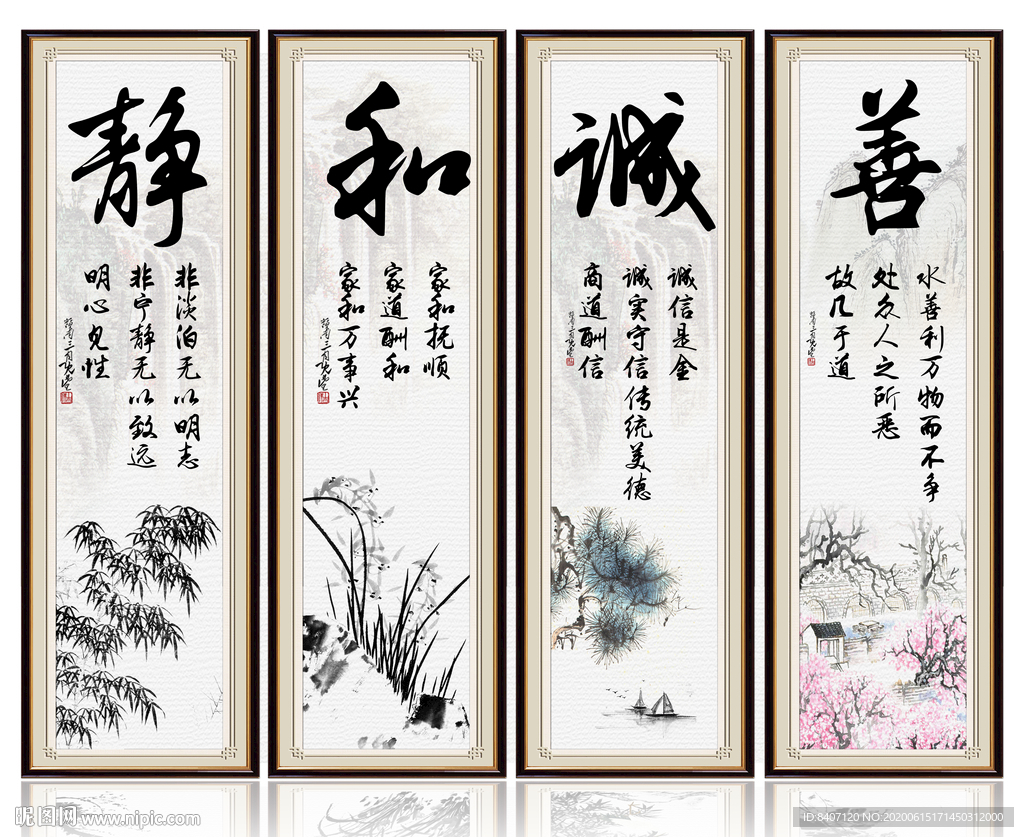 静
非淡泊无以明志
非宁静无以致远
明心见性
和
家和抚顺
家道酬和
家和万事兴
诚
诚信是金
诚实守信传统美德
商道酬信
善
水善利万物而不争
处众人之所恶
故几于道
昵图网 www.nipic.com
ID:8407120 NO:20200615171450312000